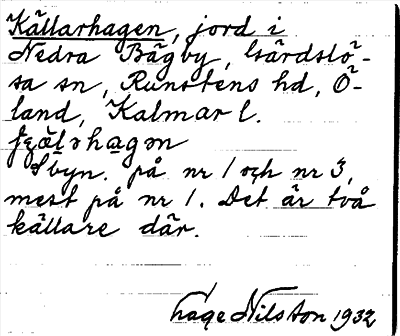 Källarhagen, jord i
Nedra Bägby, Gärdslö-
sa sn, Runstens hd, Ö-
land, Kalmar l.
S byn. på nr 1 och nr 3,
mest på nr 1. Det är två
källare där.
Hage Nilsson 1932